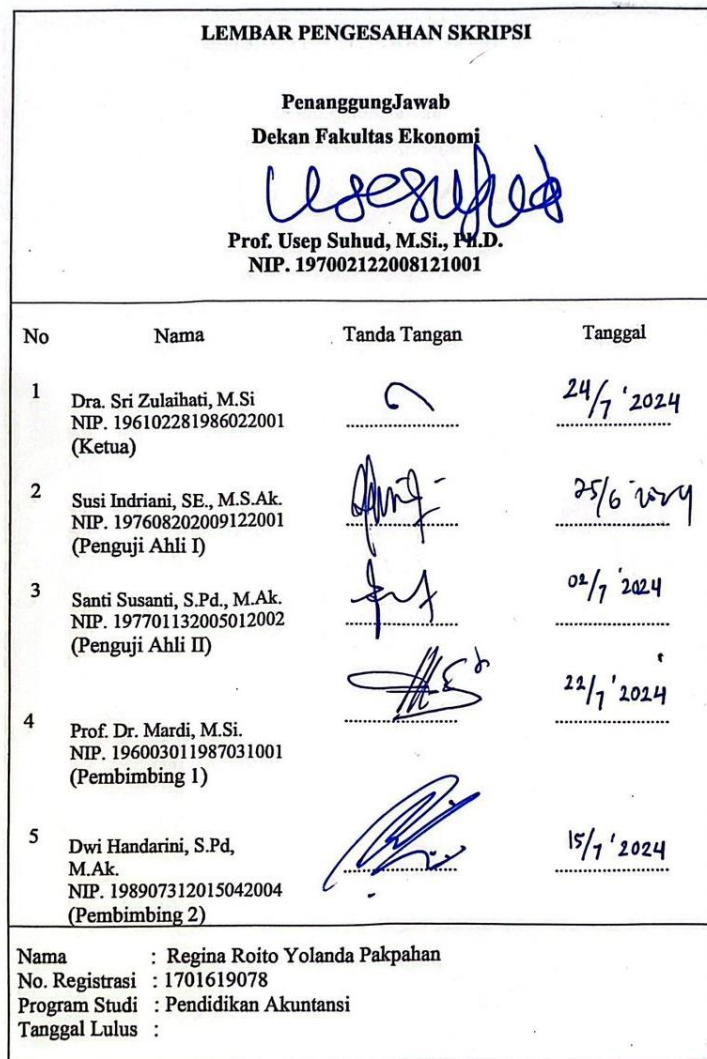 LEMBAR PENGESAHAN SKRIPSI
PenanggungJawab
Dekan Fakultas Ekonomi
Prof. Usep Suhud, M.Si., Ph.D.
NIP. 197002122008121001
No Nama Tanda Tangan Tanggal
1 Dra. Sri Zulaihati, M.Si 24/7 '2024
NIP. 196102281986022001 ........................
(Ketua)
2 Susi Indriani, SE., M.S.Ak. 25/6 2024
NIP. 197608202009122001 ........................
(Penguji Ahli I)
3 Santi Susanti, S.Pd., M.Ak. 02/7 '2024
NIP. 197701132005012002 ........................
(Penguji Ahli II)
22/7 '2024
4 Prof. Dr. Mardi, M.Si. ........................
NIP. 196003011987031001
(Pembimbing 1)
5 Dwi Handarini, S.Pd, 15/7 '2024
M.Ak. ........................
NIP. 198907312015042004
(Pembimbing 2)
Nama : Regina Roito Yolanda Pakpahan
No. Registrasi : 1701619078
Program Studi : Pendidikan Akuntansi
Tanggal Lulus :